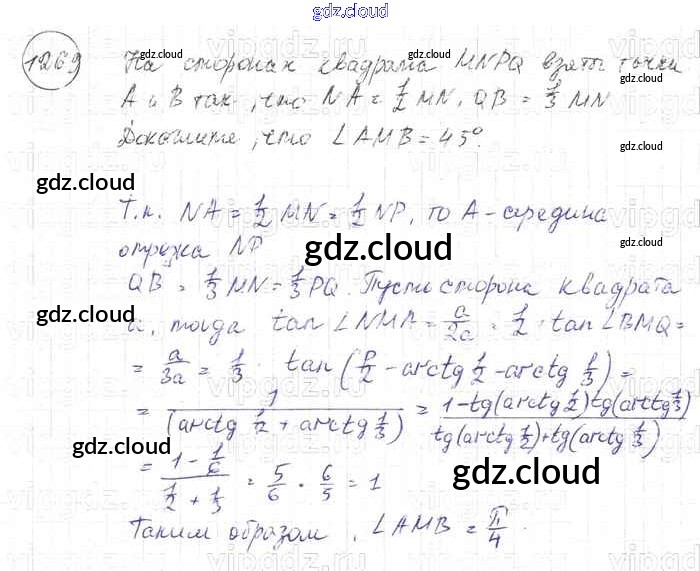 gdz.cloud
1269 На сторонах квадрата MNPQ взяты точки
gdz.cloud gdz.cloud
A и B так, что NA = 1/2 MN, QB = 1/3 MN
Докажите, что ∠AMB = 45°.
gdz.cloud gdz.cloud
Т.к. NA = 1/2 MN = 1/2 NP, то A - середина
отрезка NP
gdz.cloud gdz.cloud
QB = 1/3 MN = 1/3 PQ. Пусть сторона квадрата
a, тогда tan ∠NMA = a/2a = 1/2 . tan ∠BMQ =
gdz.cloud gdz.cloud
= a/3a = 1/3 . tan(P/2 - arctg 1/2 - arctg 1/3) =
= 1/(arctg 1/2 + arctg 1/3) = (1-tg(arctg 1/2)tg(arctg 1/3))/(tg(arctg 1/2)+tg(arctg 1/3))
gdz.cloud
= (1 - 1/6)/(1/2 + 1/3) = 5/6 · 6/5 = 1
gdz.cloud
Таким образом, ∠AMB = π/4.